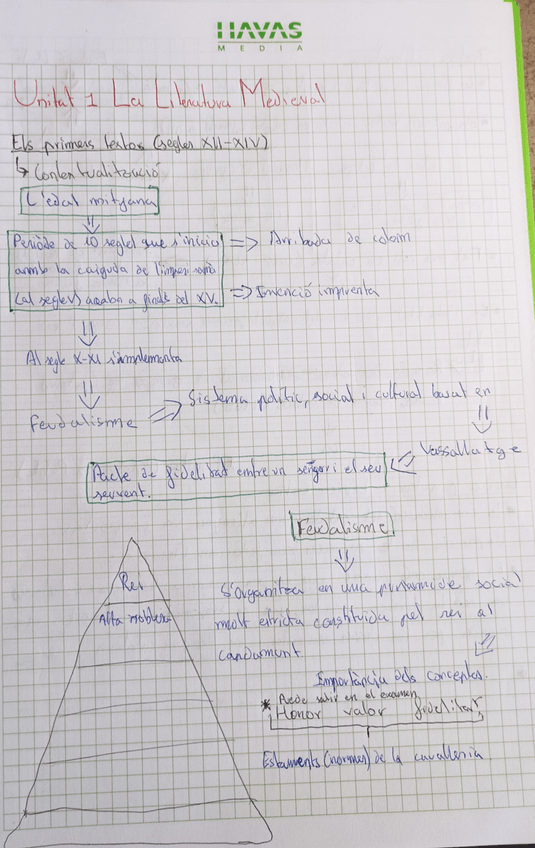 HAVAS
MEDIA
Unitat 1 La Literatura Medieval
Els primers textos (segles XII-XIV)
↳ Contextualització
L'edat mitjana
Període de 10 segles que s'inicia => Arribada de colom
amb la caiguda de l'imperi romà
(al segle V) acaba a finals del XV. => Invenció impremta
Al segle X-XI s'implementa
Feudalisme => Sistema polític, social i cultural basat en
Vassallatge
Pacte de fidelitat entre un senyor i el seu
servent.
Feudalisme
S'organitza en una piramide social
molt estricta constituida pel rei al
capdamunt
Rei
Alta noblesa
Importància dels conceptes.
* Puede salir en el examen
Honor valor fidelitat
Estaments (normes) de la cavalleria